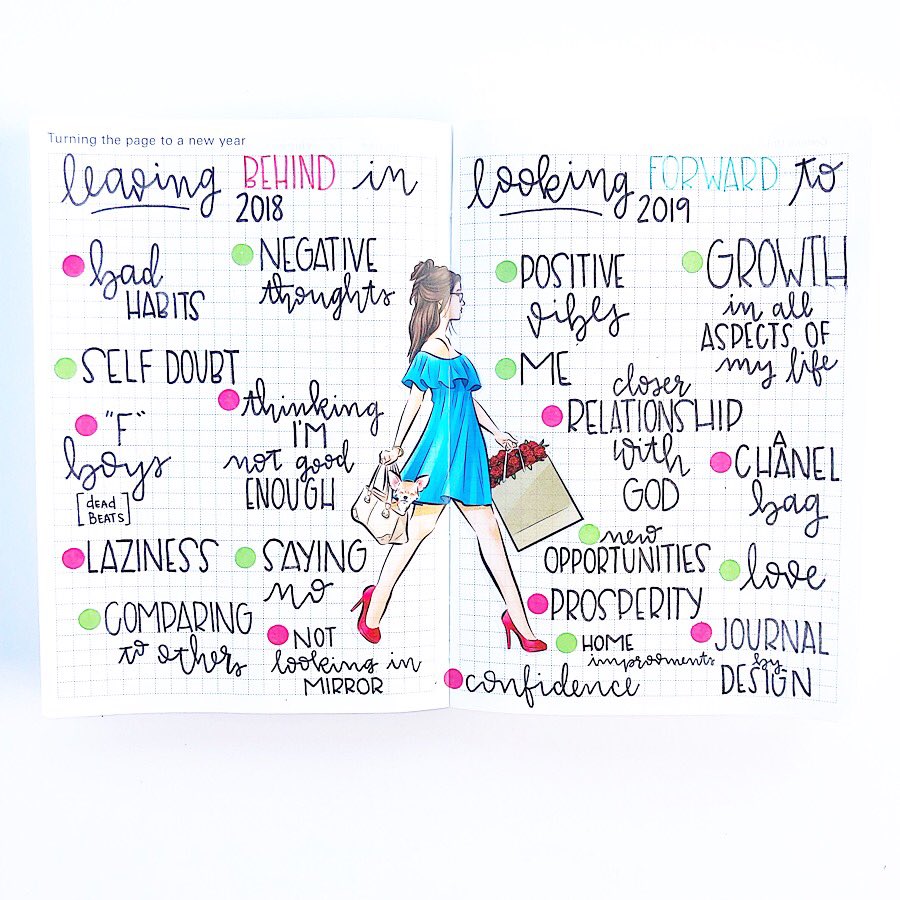 Turning the page to a new year
leaving BEHIND in
2018
bad
HABITS
NEGATIVE
thoughts
SELF DOUBT
thinking
I'M
not good
ENOUGH
"F"
boys
[dead
BEATS]
LAZINESS
SAYING
no
COMPARING
to others
NOT
looking in
MIRROR
looking FORWARD to
2019
POSITIVE
vibes
GROWTH
in all
ASPECTS OF
my life
ME
closer
RELATIONSHIP
with
GOD
CHÂNEL
bag
new
OPPORTUNITIES
love
PROSPERITY
HOME
improoments
JOURNAL
by
DESIGN
confidence